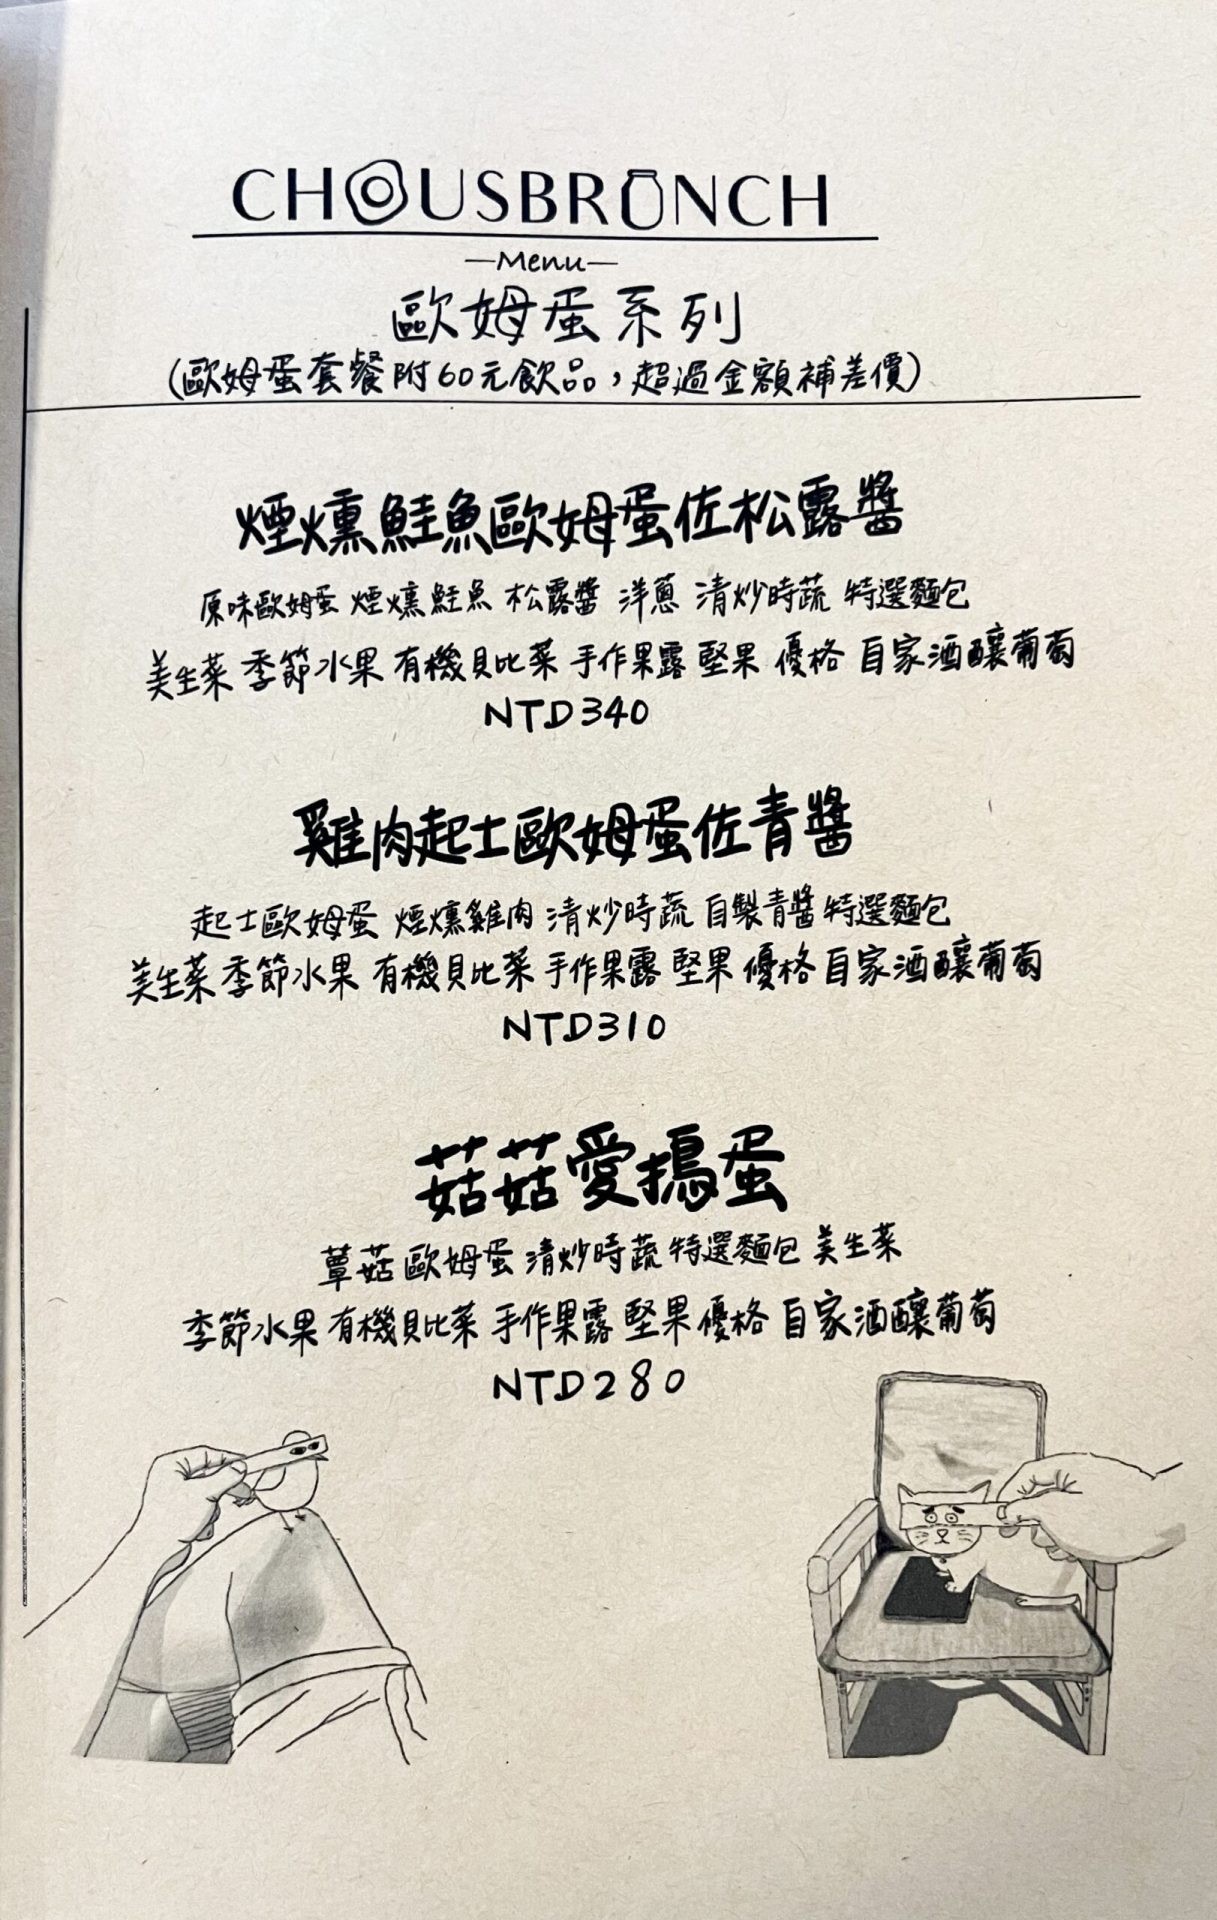 CHOUSBRUNCH
—Menu—
歐姆蛋系列
(歐姆蛋套餐附60元飲品，超過金額補差價)
煙燻鮭魚歐姆蛋佐松露醬
原味歐姆蛋 煙燻鮭魚 松露醬 洋蔥 清炒時蔬 特選麵包
美生菜 季節水果 有機貝比菜 手作果露 堅果 優格 自家酒釀葡萄
NTD340
雞肉起士歐姆蛋佐青醬
起士歐姆蛋 煙燻雞肉 清炒時蔬 自製青醬 特選麵包
美生菜 季節水果 有機貝比菜 手作果露 堅果 優格 自家酒釀葡萄
NTD310
菇菇愛搗蛋
蕈菇歐姆蛋 清炒時蔬 特選麵包 美生菜
季節水果 有機貝比菜 手作果露 堅果 優格 自家酒釀葡萄
NTD280